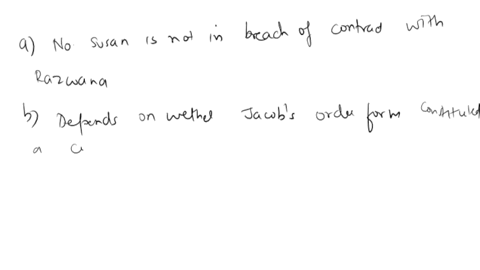 a) No Susan is not in breach of contrad with
Razwana
b) Depends on wethel Jacob's order form constituted
a c